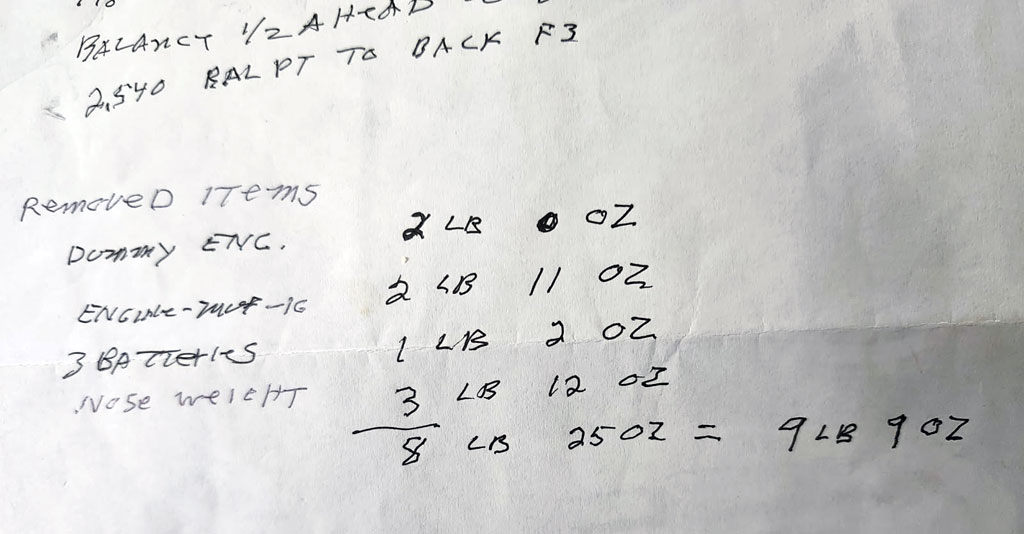 BALANCE 1/2 AHEAD
2,540 BAL PT TO BACK F3
REMOVED ITEMS
DUMMY ENG. 2 LB 0 OZ
ENGINE-MUF-IG 2 LB 11 OZ
3 BATTERIES 1 LB 2 OZ
NOSE WEIGHT 3 LB 12 OZ
8 LB 25 OZ = 9 LB 9 OZ